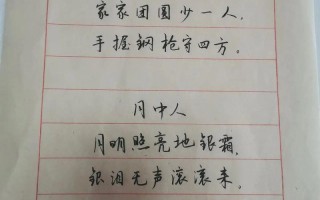 家家团圆少一人,
手握钢枪守四方.
月中人
月明照亮地银霜,
银泪无声滚滚来,